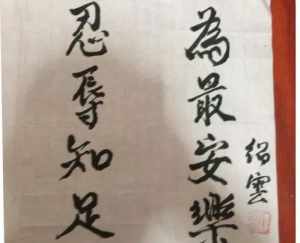 忍辱知足
為最安樂
紹雲